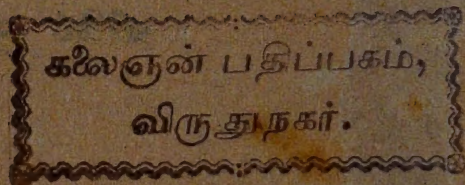 கலைஞன் பதிப்பகம்,
விருதுநகர்.